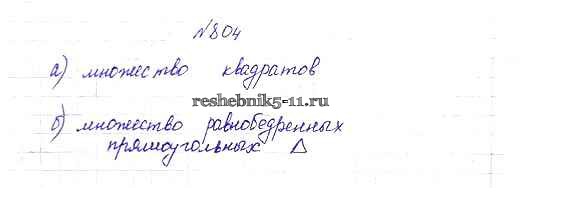 №804
а) множество квадратов
reshebnik5-11.ru
б) множество равнобедренных
прямоугольных Δ